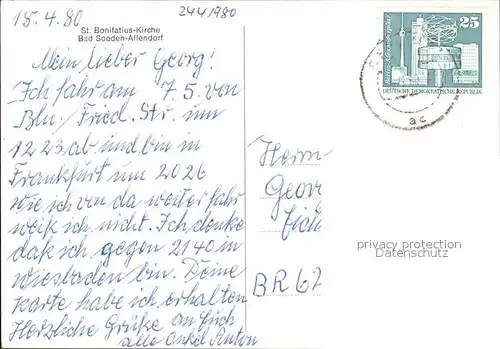 18.4.80
2441980
St. Bonifatius-Kirche
Bad Sooden-Allendorf
Mein lieber Georg!
Ich fahr am 7 5. von
Bln. Fried. Str. um
1223 ab. und bin in
Frankfurt um 2026
wie ich von da weiter fahr
weiß ich nicht. Ich denke
daß ich gegen 2140 in
Wiesbaden bin. Deine
Karte habe ich erhalten
Herzliche Grüße an Euch
alle Onkel Anton
25
DEUTSCHE DEMOKRATISCHE REPUBLIK
ac
Herrn
Geor
BR 62
privacy protection
Datenschutz